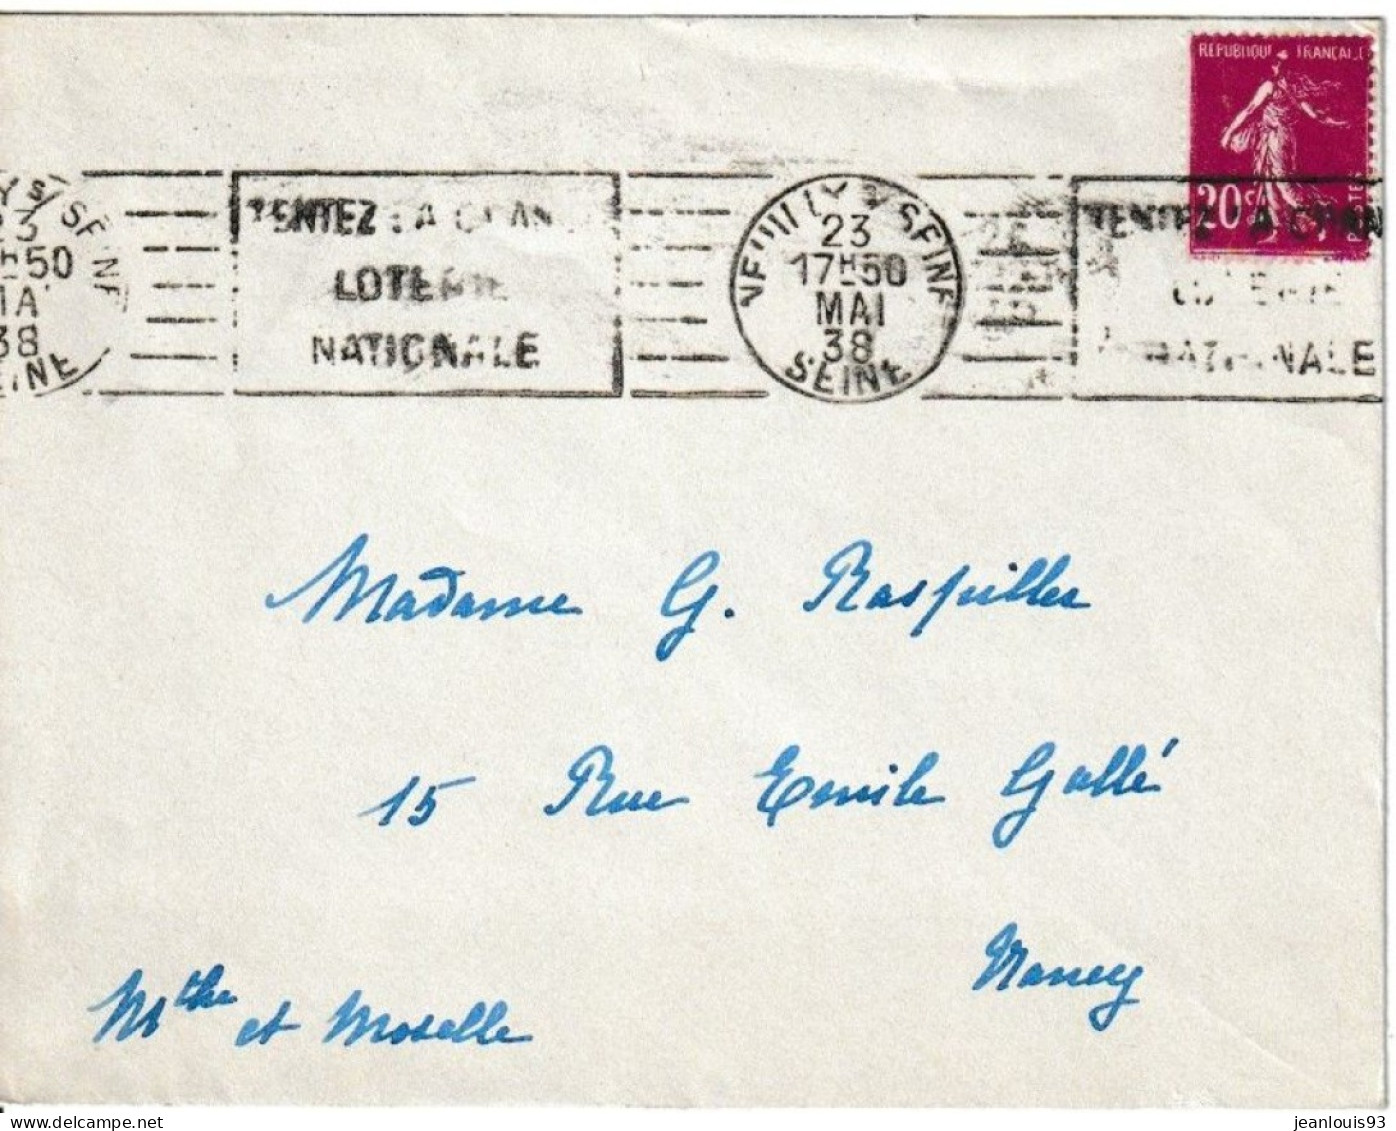 REPUBLIQUE FRANCAISE
20c
POSTES
Y s/ SEINE
23
H 50
MAI
38
SEINE
TENTEZ LA CHANCE
LOTERIE
NATIONALE
NEUILLY S SEINE
23
17H50
MAI
38
SEINE
TENTEZ LA CHAN
LOTERIE
NATIONALE
Madame G. Raspiller
15 Rue Emile Gallé
Nancy
Mthe et Moselle
jeanlouis93